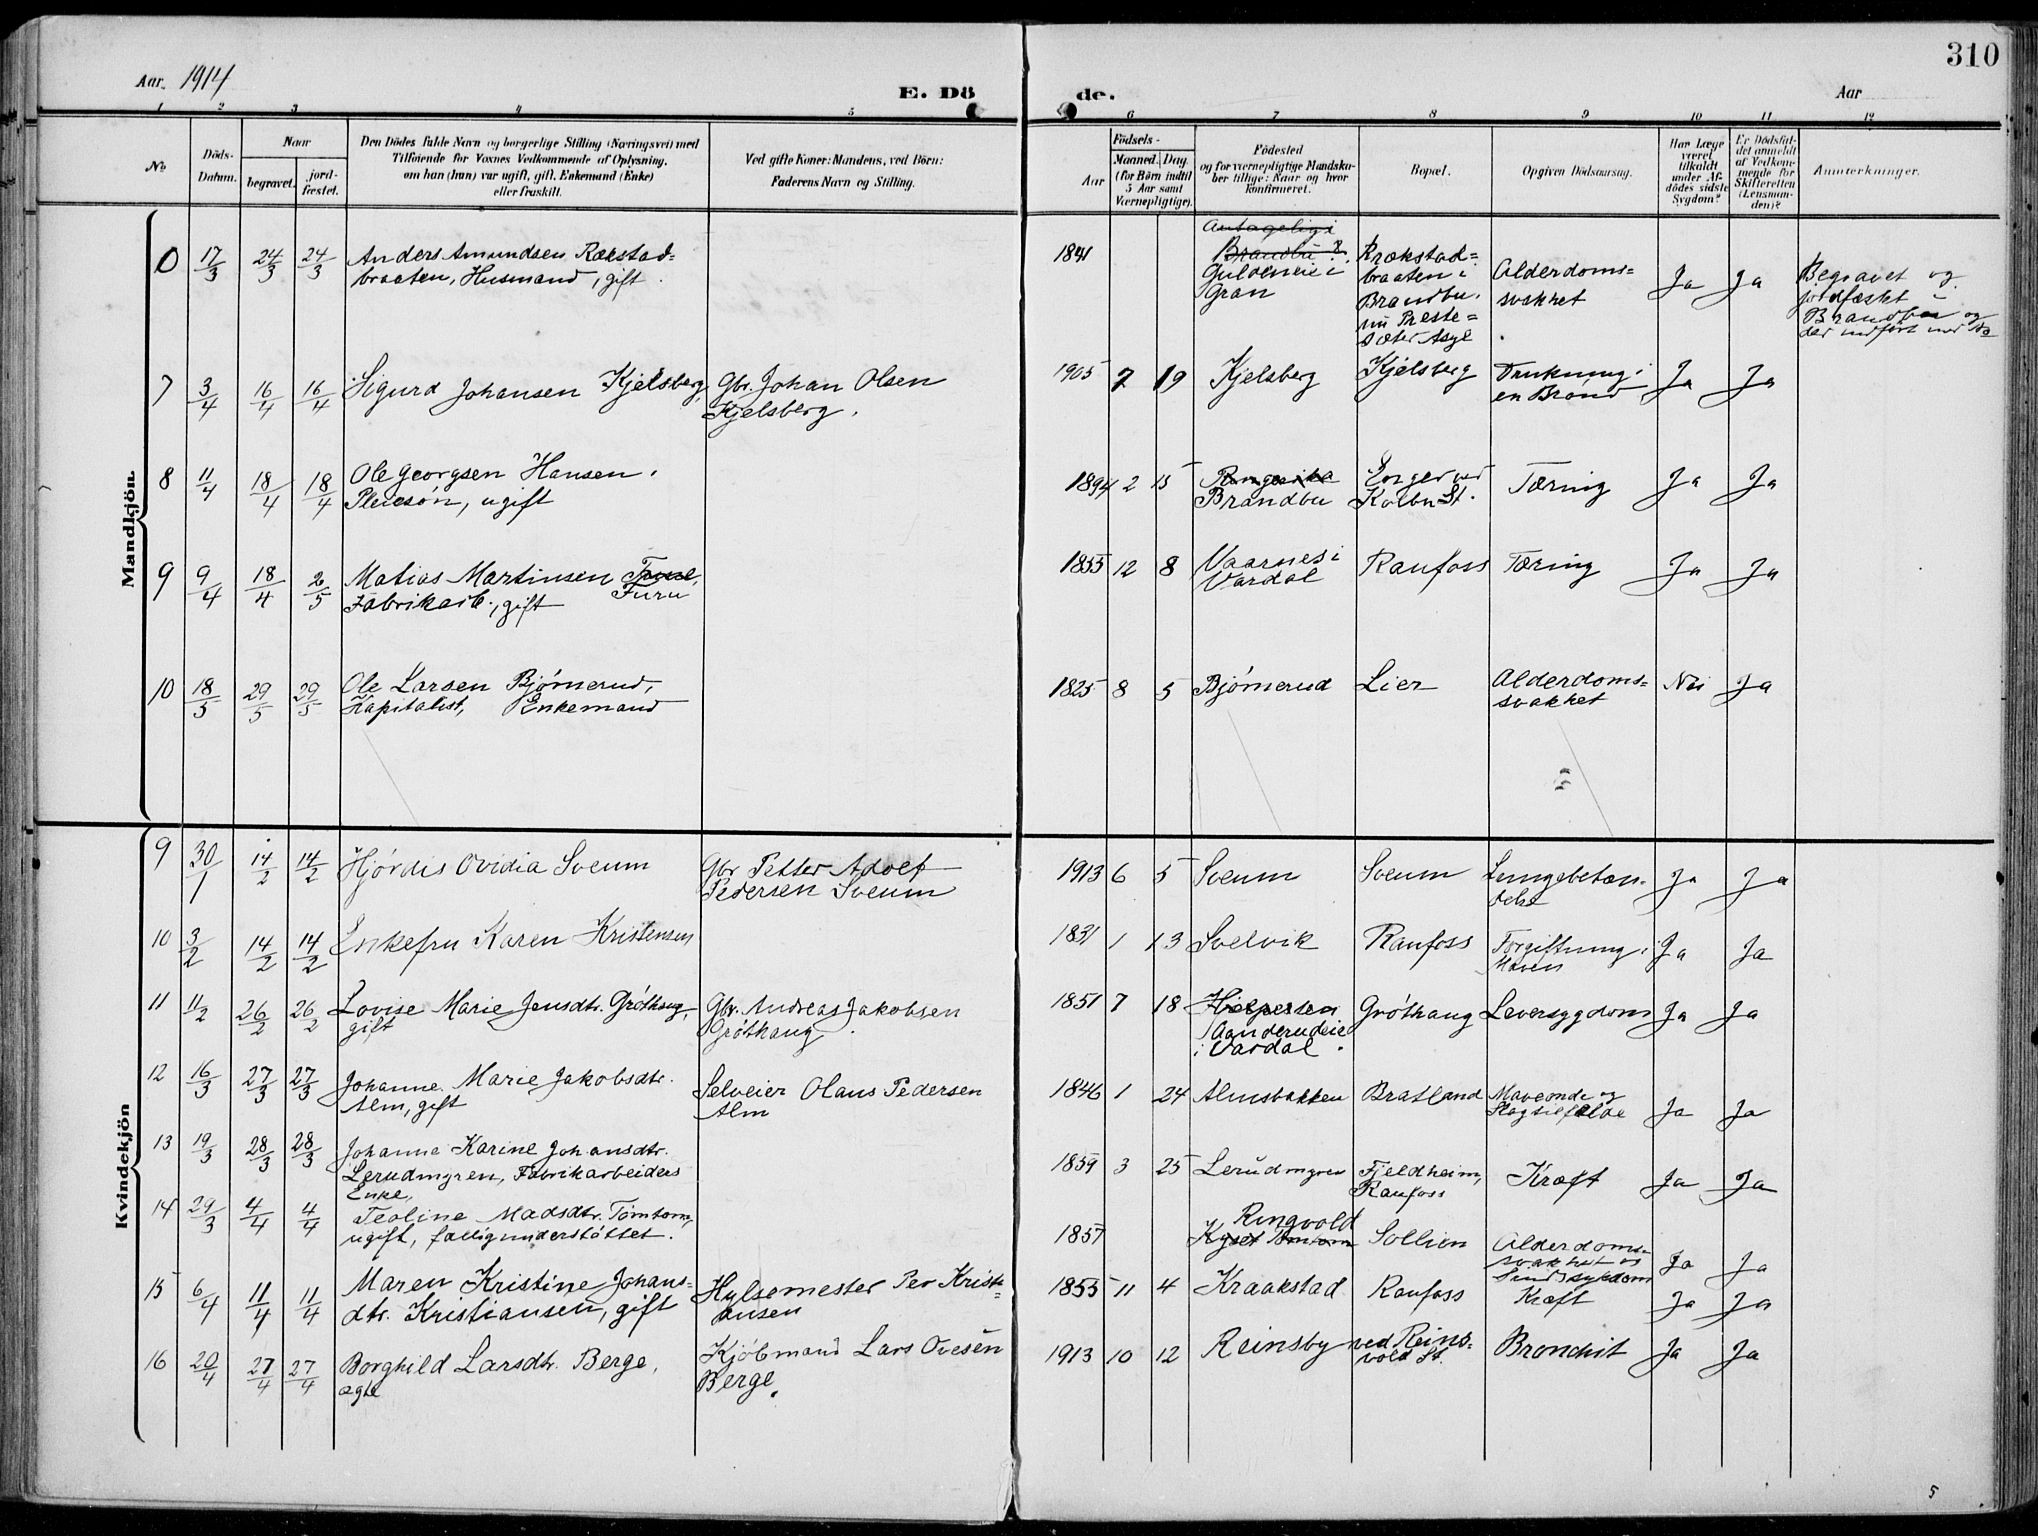 310
Aar. 1914
E. Dö de.
Aar
1 2 3 4 5 6 7 8 9 10 11 12
No.
Döds-Datum.
Naar
begravet.
jord-fæstet.
Den Dödes fulde Navn og borgerlige Stilling (Næringsvei) med
Tilföiende for Voxnes Vedkommende af Oplysning,
om han (hun) var ugift, gift, Enkemand (Enke)
eller fraskilt.
Ved gifte Koner: Mandens, ved Börn:
Faderens Navn og Stilling.
Födsels-
Aar
Maaned. Dag.
(for Börn indtil
5 Aar samt
Værnepligtige).
Födested
og for værnepligtige Mandska-
ber tillige: Naar og hvor
konfirmeret.
Bopæl.
Opgiven Dödsaarsag.
Har Læge
været
tilkaldt
under Af-
dödes sidste
Sygdom?
Er Dödsfal-
det anmeldt
af Vedkom-
mende for
Skifteretten
(Lensman-
den)?
Anmærkninger.
Mandkjön.
0 17/3 24/3 24/3 Anders Amundsen Rækstad-
braaten, Husmand, gift.
1841
Antagelig i
Brandbu?
Guldeneie i
Gran
Rækstad=
braaten i
Brandbu.
nu Preste=
sæter Asyl
Alderdoms=
svakhet
Ja Ja
Begravet og
jordfæstet i
Brandbu og
der indført med No
7 3/4 16/4 16/4 Sigurd Johansen Kjelsberg, Gbr. Johan Olsen
Kjelsberg.
1905 7 19 Kjelsberg Kjelsberg Drukning i
en Brønd Ja Ja
8 11/4 18/4 18/4 Ole Georgsen Hansen.
Pleiesøn, ugift
1894 2 15 Ringerike
Brandbu
Enger ved
Kolbu St.
Tæring Ja Ja
9 9/4 18/4 2/5 Matias Martinsen
Fabrikarb., gift Furu
1855 12 8 Vaarnes i
Vardal
Raufoss Tæring Ja Ja
10 18/5 29/5 29/5 Ole Larsen Bjørnerud,
Kapitalist, Enkemand
1825 8 5 Bjørnerud Lier Alderdoms=
svakhet Nei Ja
Kvindekjön
9 30/1 14/2 14/2 Hjørdis Ovidia Sveum Gbr. Petter Adolf
Pedersen Sveum
1913 6 5 Sveum Sveum Lungebetæn-
delse Ja Ja
10 3/2 14/2 14/2 Enkefru Karen Kristensen
1831 1 13 Svelvik Raufoss Forgiftning i
Maven Ja Ja
11 11/2 26/2 26/2 Lovise Marie Jensdtr. Grøthaug,
gift
Gbr. Andreas Jakobsen
Grøthaug.
1851 7 18
Aanderudeie
i Vardal.
Grøthaug Leversygdom Ja Ja
12 16/3 27/3 27/3 Johanne Marie Jakobsdtr.
Alm, gift
Selveier Olaus Pedersen
Alm
1846 1 24 Almsbakken Bratland Maveonde og
Slagtilfælde Ja Ja
13 19/3 28/3 28/3 Johanne Karine Johansdtr.
Lerudmyren, Fabrikarbeiders
Enke,
1859 3 25 Lerudmyren Fjeldheim,
Raufoss
Kræft Ja Ja
14 29/3 4/4 4/4 Teoline Madsdtr. Tømtom,
ugift, fattigunderstøttet.
1857 Ringvold
Sollien Alderdoms=
svakhet og
Sindssykdom Ja Ja
15 6/4 11/4 11/4 Maren Kristine Johans=
dtr. Kristiansen, gift
Hylsemester Per Krist=
iansen
1855 11 4 Kraakstad Raufoss Kræft Ja Ja
16 20/4 27/4 27/4 Borghild Larsdtr. Berge,
ægte
Kjøbmand Lars Ovesen
Berge.
1913 10 12 Reinsby ved Reins-
vold St. Bronchit Ja Ja
5